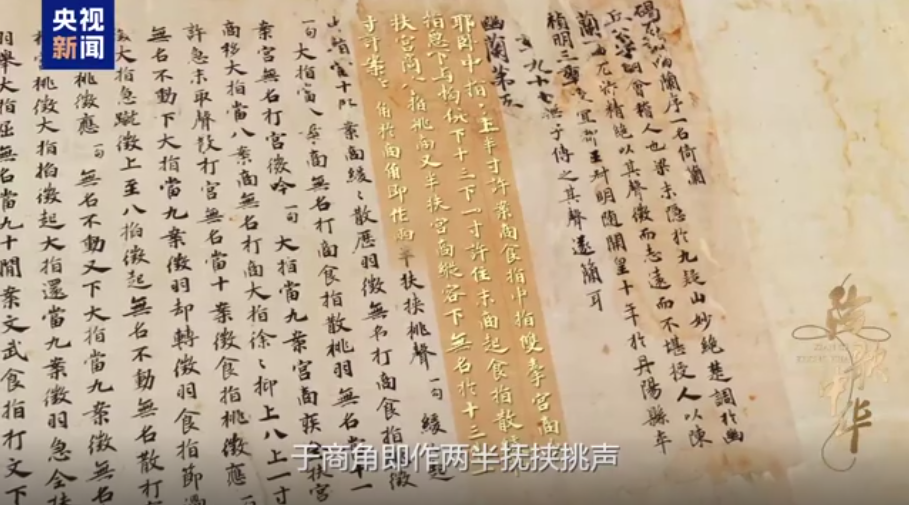 央视
新闻
碣石調幽蘭序一名倚蘭
丘公字明會稽人也梁末隱於九疑山妙絕楚調於幽
蘭一曲尤特精絕以其聲微而志遠而不堪授人以陳
禎明三年授宜都王叔明隨開皇十年於丹陽縣卒
九十七無子傳之其聲遂簡耳
幽蘭第五
耶臥中指上半寸許案商食指中指雙牽宮商
指急下与拘俱下十三下一寸許住末商起食指散緩
扶宮商食指挑商又半扶宮商縱容下無名於十三外
寸許案商角於商角即作兩半扶挾挑聲一句緩起
案商緩〻散歷羽徵無名打商食指徵
一句大指當八案商無名打商食指散挑羽無名當十一
案宮無名打宮徵吟一句大指當九案宮商疾全扶宮
商移大指當八案商無名打商大指徐〻抑上八上一寸
許急末取聲散打宮無名當十案徵食指挑徵應一
無名不動下大指當九案徵羽却轉徵羽食指節過
徵大指急蹴徵上至八掐徵起無名不動無名散打
挑徵應一句無名不動又下大指當九案徵無名
挑徵大指掐徵起大指還當九案徵羽急全扶
羽舉大指無名當九十間案文武食指打文下
于商角即作两半抚挟挑声